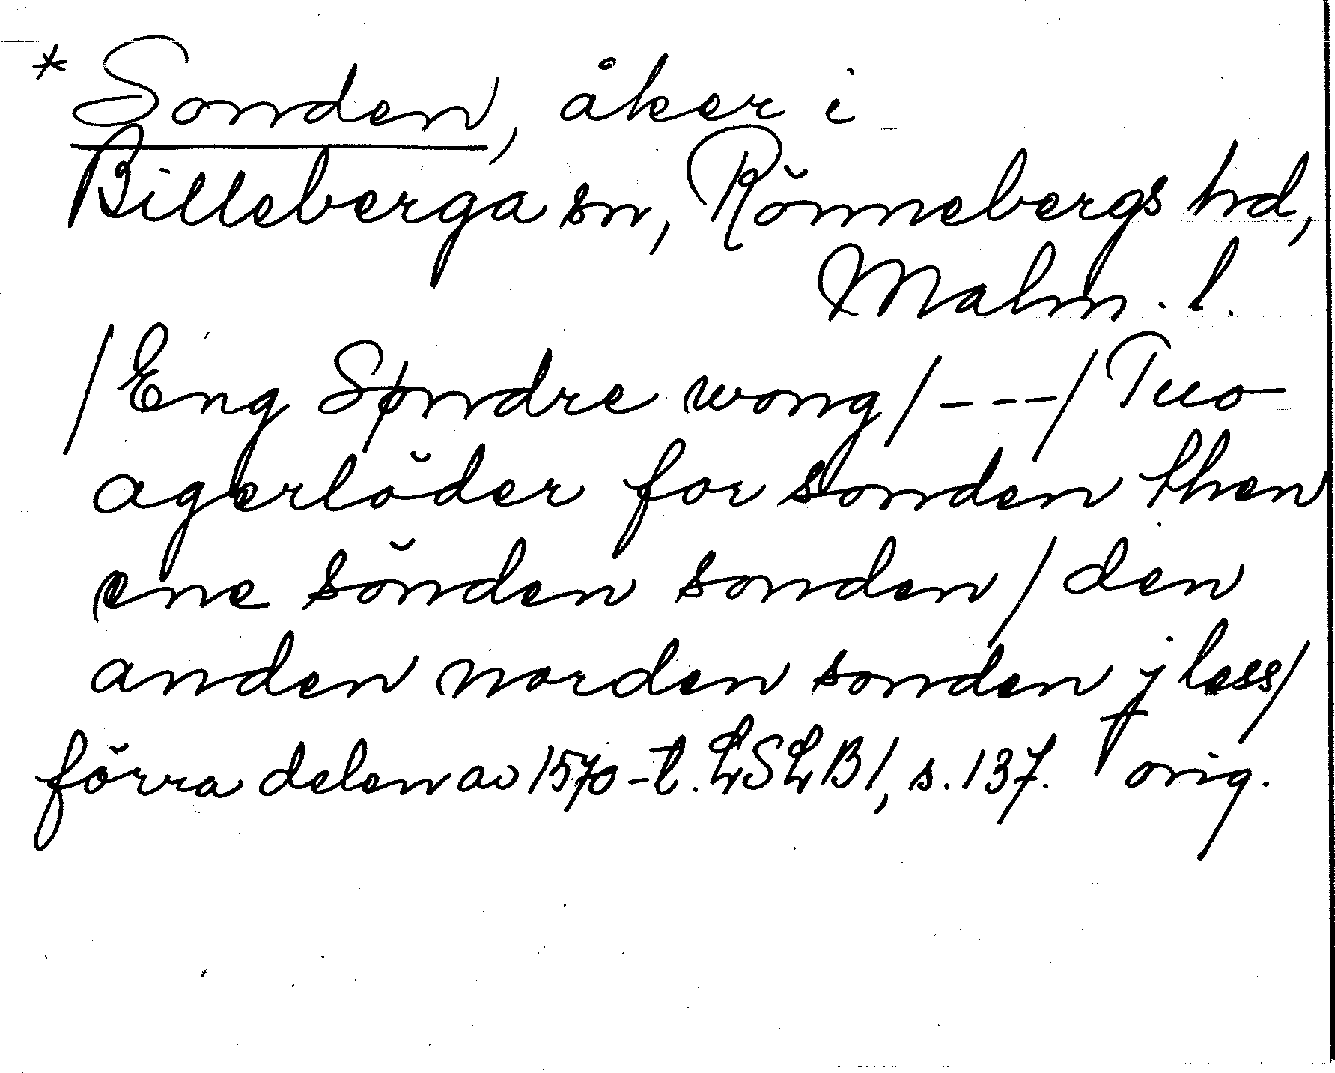 * Sonden, åker i
Billeberga sn, Rönnebergs hd,
Malm. l.
/Eng Søndre wong/---/Tuo
agerlöder for sonden then
ene sönden sonden/den
anden norden sonden j less/
förra delen av 1570-t. LSLB1, s. 137. orig.